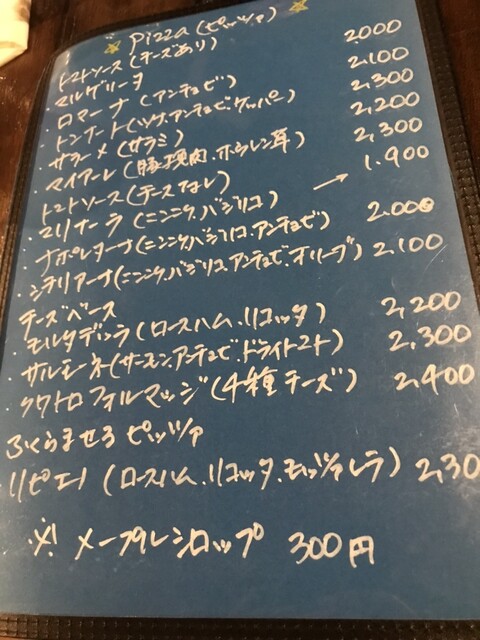 Pizza (ピッツァ)
トマトソース (チーズあり)
・マルゲリータ 2,000
・ロマーナ (アンチョビ) 2,100
・トンナート (ツナ.アンチョビ.ケッパー) 2,300
・サラーメ (サラミ) 2,200
・マイアーレ (豚挽肉.ホウレン草) 2,300
トマトソース (チーズなし)
・マリナーラ (ニンニク.バジリコ) → 1,900
・ナポレターナ (ニンニク.バジリコ.アンチョビ) 2,000
・シチリアーナ (ニンニク.バジリコ.アンチョビ.オリーブ) 2,100
チーズベース
・モルタデッラ (ロースハム.リコッタ) 2,200
・サルモーネ (サーモン.アンチョビ.ドライトマト) 2,300
・クワトロフォルマッジ (4種チーズ) 2,400
ふくらませる ピッツァ
・リピエノ (ロースハム.リコッタ.モッツァレラ) 2,30
※ メープルシロップ 300円